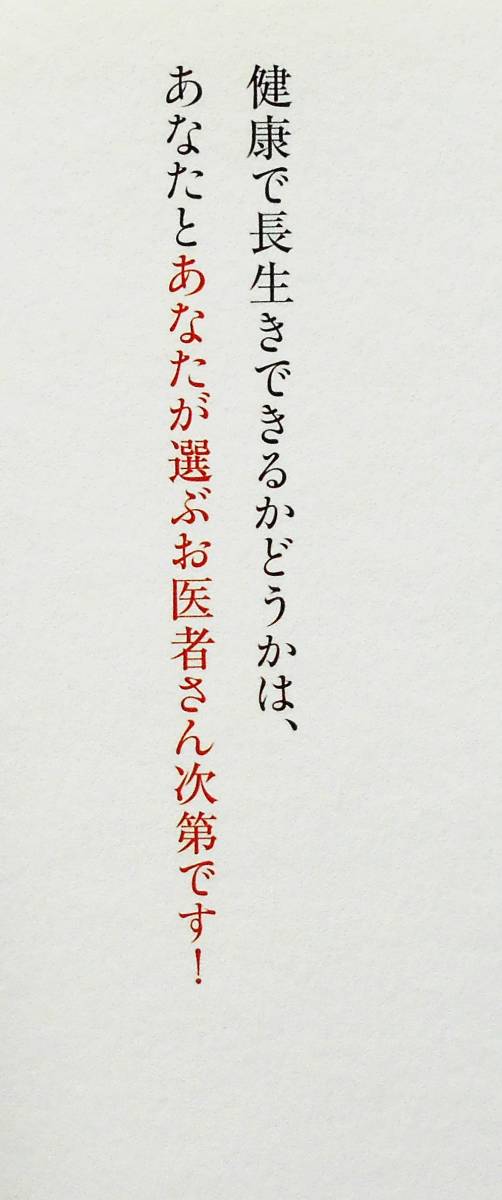 健康で長生きできるかどうかは、
あなたとあなたが選ぶお医者さん次第です！